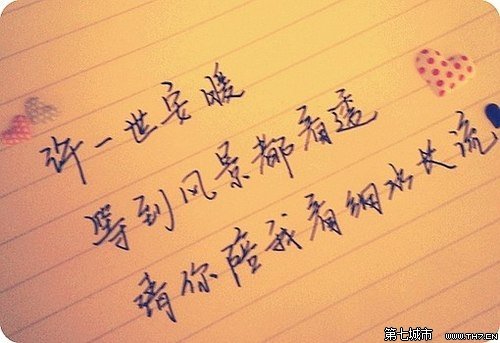 许一世安暖
等到风景都看透
请你陪我看细水长流
第七城市 WWW.TH7.CN